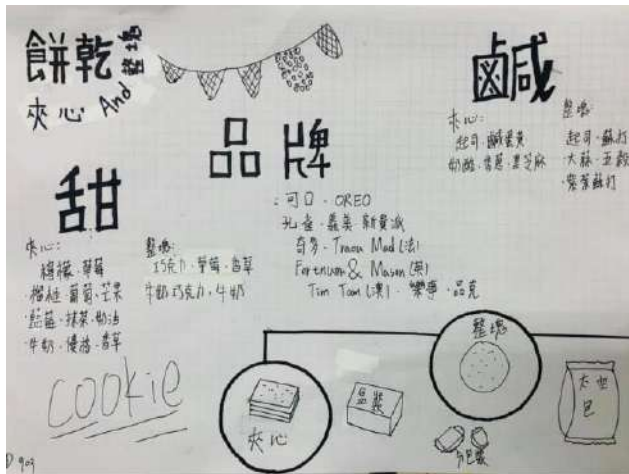 餅乾
整塊
夾心 And
鹹
夾心:
起司·鹹蛋黃
奶酪·香蔥·黑芝麻
整塊:
起司·蘇打
大蒜·五穀
·紫菜蘇打
品牌
:可口·OREO
孔雀·義美·新貴派
奇多·Traou Mad(法)
Fortnum & Mason(英)
Tim Tam(澳)·樂事·品克
甜
夾心:
檸檬·草莓
·榴槤·葡萄·芒果
·藍莓·抹茶·奶油
·牛奶·優格·香草
整塊:
巧克力·草莓·香草
牛奶巧克力·牛奶
cookie
夾心
盒裝
整塊
巧包裝
大包
903